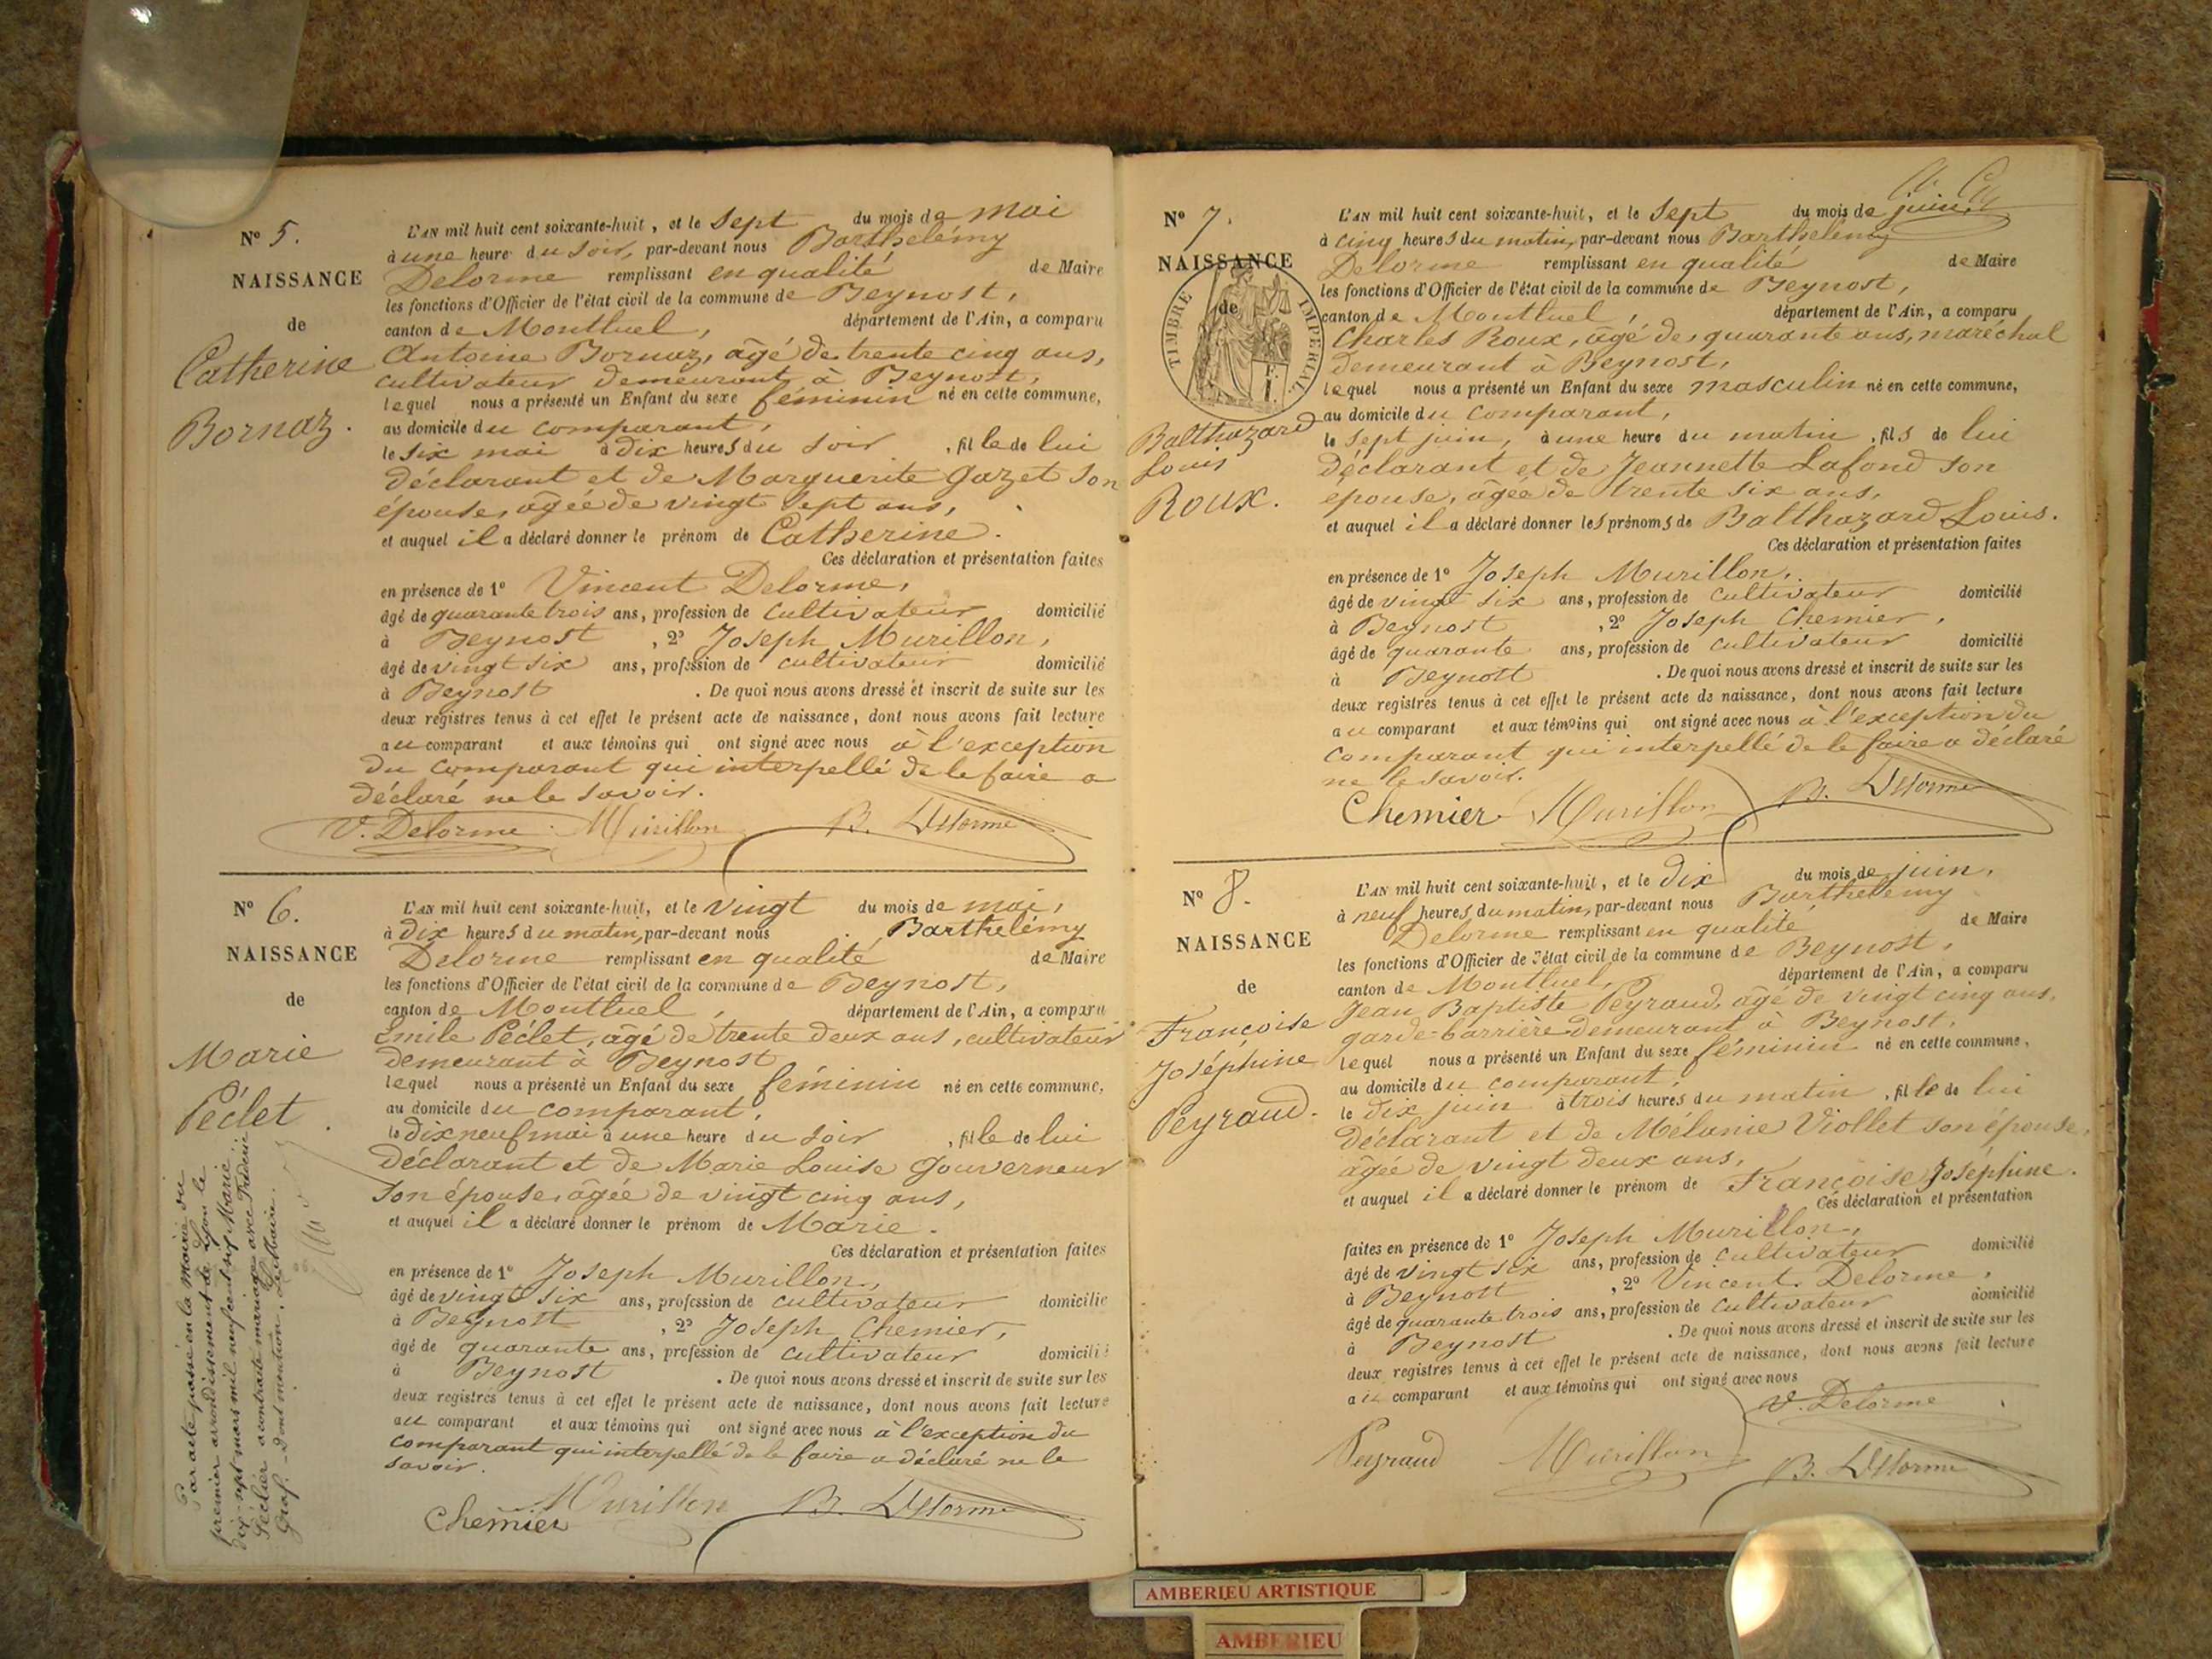 N° 5.
NAISSANCE
de
Catherine
Bornaz.
L'AN mil huit cent soixante-huit, et le sept du mois de mai
à une heure du soir, par-devant nous Barthelémy
Delorme remplissant en qualité de Maire
les fonctions d'Officier de l'état civil de la commune de Beynost,
canton de Montluel, département de l'Ain, a comparu
Antoine Bornaz, âgé de trente cinq ans,
cultivateur demeurant à Beynost,
lequel nous a présenté un Enfant du sexe féminin né en cette commune,
au domicile du comparant,
le six mai à dix heures du soir, fille de lui
déclarant et de Marguerite Gazet son
épouse, âgée de vingt sept ans,
et auquel il a déclaré donner le prénom de Catherine.
Ces déclaration et présentation faites
en présence de 1° Vincent Delorme,
âgé de quarante trois ans, profession de cultivateur domicilié
à Beynost, 2° Joseph Murillon,
âgé de vingt six ans, profession de cultivateur domicilié
à Beynost. De quoi nous avons dressé et inscrit de suite sur les
deux registres tenus à cet effet le présent acte de naissance, dont nous avons fait lecture
au comparant et aux témoins qui ont signé avec nous à l'exception
du comparant qui interpellé de le faire a
déclaré ne le savoir.
V. Delorme Murillon B. Delorme
N° 6.
NAISSANCE
de
Marie
Péclet.
L'AN mil huit cent soixante-huit, et le vingt du mois de mai,
à dix heures du matin, par-devant nous Barthelémy
Delorme remplissant en qualité de Maire
les fonctions d'Officier de l'état civil de la commune de Beynost,
canton de Montluel, département de l'Ain, a comparu
Emile Péclet, âgé de trente deux ans, cultivateur
demeurant à Beynost
lequel nous a présenté un Enfant du sexe féminin né en cette commune,
au domicile du comparant,
le dix neuf mai à une heure du soir, fille de lui
déclarant et de Marie Louise Gouverneur
son épouse, âgée de vingt cinq ans,
et auquel il a déclaré donner le prénom de Marie.
Ces déclaration et présentation faites
en présence de 1° Joseph Murillon,
âgé de vingt six ans, profession de cultivateur domicilié
à Beynost, 2° Joseph Chemier,
âgé de quarante ans, profession de cultivateur domicilié
à Beynost. De quoi nous avons dressé et inscrit de suite sur les
deux registres tenus à cet effet le présent acte de naissance, dont nous avons fait lecture
au comparant et aux témoins qui ont signé avec nous à l'exception du
comparant qui interpellé de le faire a déclaré ne le
savoir.
Chemier Murillon B. Delorme
Par acte passé en la mairie du
premier arrondissement de Lyon le
dix-sept mars mil neuf cent six, Marie
Péclet a contracté mariage avec Frédéric
Graf. - Dont mention. Le Maire.
N° 7.
NAISSANCE
de
TIMBRE IMPÉRIAL
Balthazard
Louis
Roux.
L'AN mil huit cent soixante-huit, et le sept du mois de juin,
à cinq heures du matin, par-devant nous Barthelémy
Delorme remplissant en qualité de Maire
les fonctions d'Officier de l'état civil de la commune de Beynost,
canton de Montluel, département de l'Ain, a comparu
Charles Roux, âgé de quarante ans, maréchal
demeurant à Beynost,
lequel nous a présenté un Enfant du sexe masculin né en cette commune,
au domicile du comparant,
le sept juin, à une heure du matin, fils de lui
déclarant et de Jeannette Lafond son
épouse, âgée de trente six ans,
et auquel il a déclaré donner les prénoms de Balthazard Louis.
Ces déclaration et présentation faites
en présence de 1° Joseph Murillon,
âgé de vingt six ans, profession de cultivateur domicilié
à Beynost, 2° Joseph Chemier,
âgé de quarante ans, profession de cultivateur domicilié
à Beynost. De quoi nous avons dressé et inscrit de suite sur les
deux registres tenus à cet effet le présent acte de naissance, dont nous avons fait lecture
au comparant et aux témoins qui ont signé avec nous à l'exception du
comparant qui interpellé de le faire a déclaré
ne le savoir.
Chemier Murillon B. Delorme
N° 8.
NAISSANCE
de
Françoise
Joséphine
Peyraud.
L'AN mil huit cent soixante-huit, et le dix du mois de juin,
à neuf heures du matin, par-devant nous Barthelémy
Delorme remplissant en qualité de Maire
les fonctions d'Officier de l'état civil de la commune de Beynost,
canton de Montluel, département de l'Ain, a comparu
Jean Baptiste Peyraud, âgé de vingt cinq ans,
garde-barrière demeurant à Beynost,
lequel nous a présenté un Enfant du sexe féminin né en cette commune,
au domicile du comparant,
le dix juin à trois heures du matin, fille de lui
déclarant et de Mélanie Viollet son épouse,
âgée de vingt deux ans,
et auquel il a déclaré donner le prénom de Françoise Joséphine.
Ces déclaration et présentation
faites en présence de 1° Joseph Murillon,
âgé de vingt six ans, profession de cultivateur domicilié
à Beynost, 2° Vincent Delorme,
âgé de quarante trois ans, profession de cultivateur domicilié
à Beynost. De quoi nous avons dressé et inscrit de suite sur les
deux registres tenus à cet effet le présent acte de naissance, dont nous avons fait lecture
au comparant et aux témoins qui ont signé avec nous
V. Delorme
Peyraud Murillon B. Delorme
AMBERIEU ARTISTIQUE
AMBERIEU